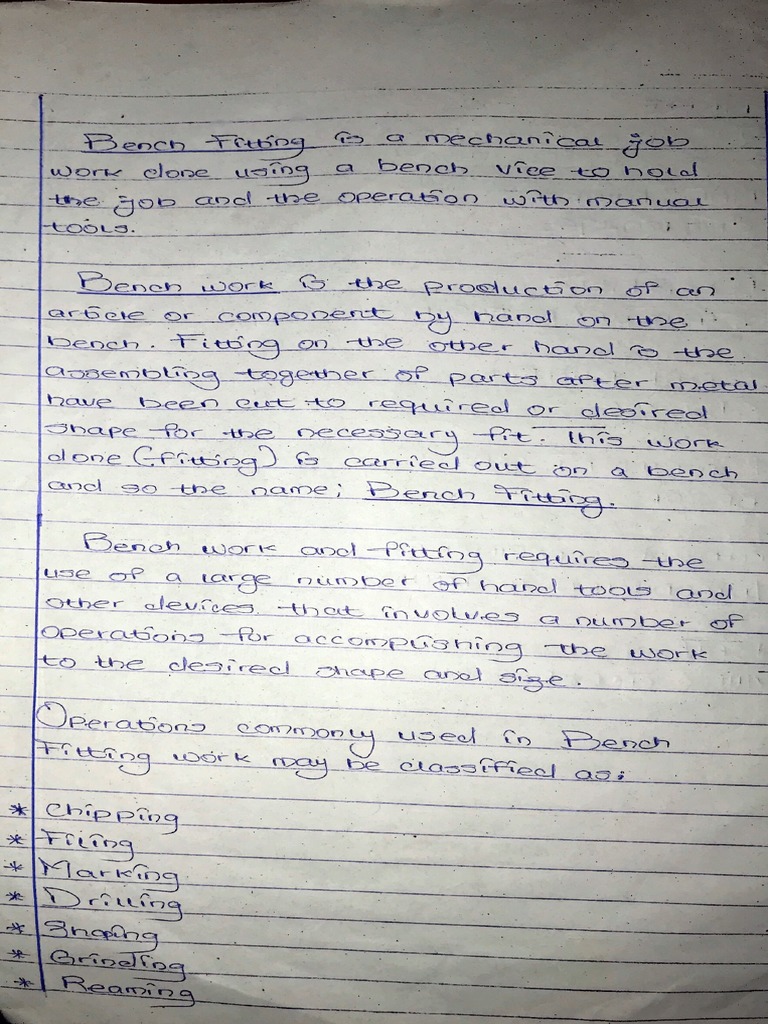 Bench Fitting is a mechanical job
work done using a bench vice to hold
the job and the operation with manual
tools.
Bench work is the production of an
article or component by hand on the
bench. Fitting on the other hand is the
assembling together of parts after metal
have been cut to required or desired
shape for the necessary fit. This work
done (fitting) is carried out on a bench
and so the name; Bench Fitting.
Bench work and fitting requires the
use of a large number of hand tools and
other devices that involves a number of
operations for accomplishing the work
to the desired shape and size.
Operations commonly used in Bench
Fitting work may be classified as:
* Chipping
* Filing
* Marking
* Drilling
* Shaping
* Grinding
* Reaming